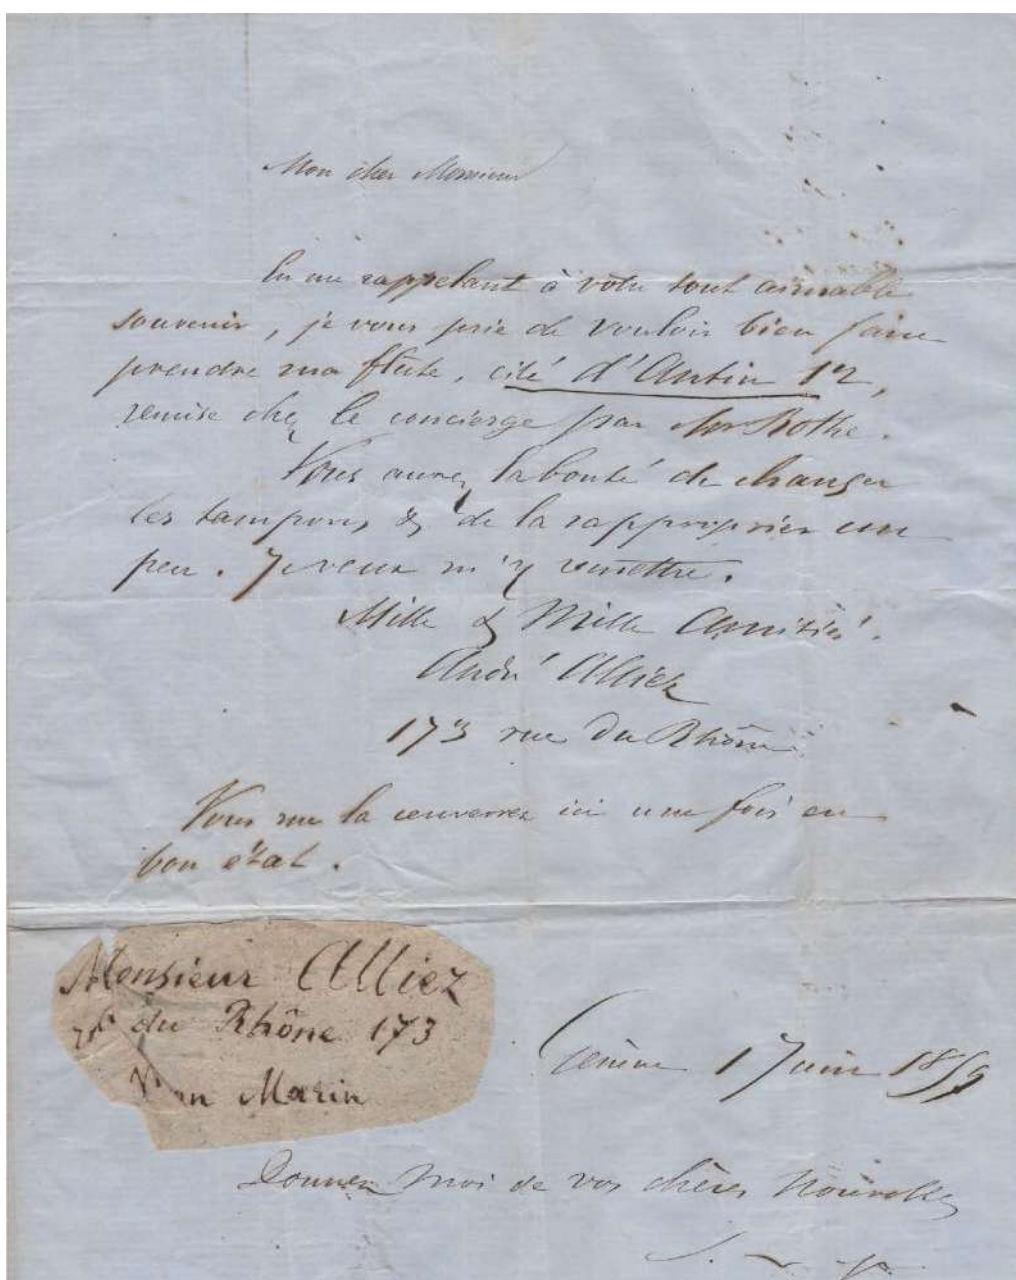 Mon cher Monsieur
En me rappelant à votre tout aimable
souvenir, je vous prie de vouloir bien faire
prendre ma flûte, cité d'Antin 12,
remise chez le concierge par Mr Rothe.
Vous aurez la bonté de changer
les tampons & de la rapproprier un
peu. Je veux m'y remettre.
Mille & Mille Amitiés.
André Alliez
173 rue du Rhône
Vous me la enverrez ici une fois en
bon état.
Monsieur Alliez
du Rhône 173
Marin
Genève 1 Juin 1859
Donnez moi de vos chères nouvelles